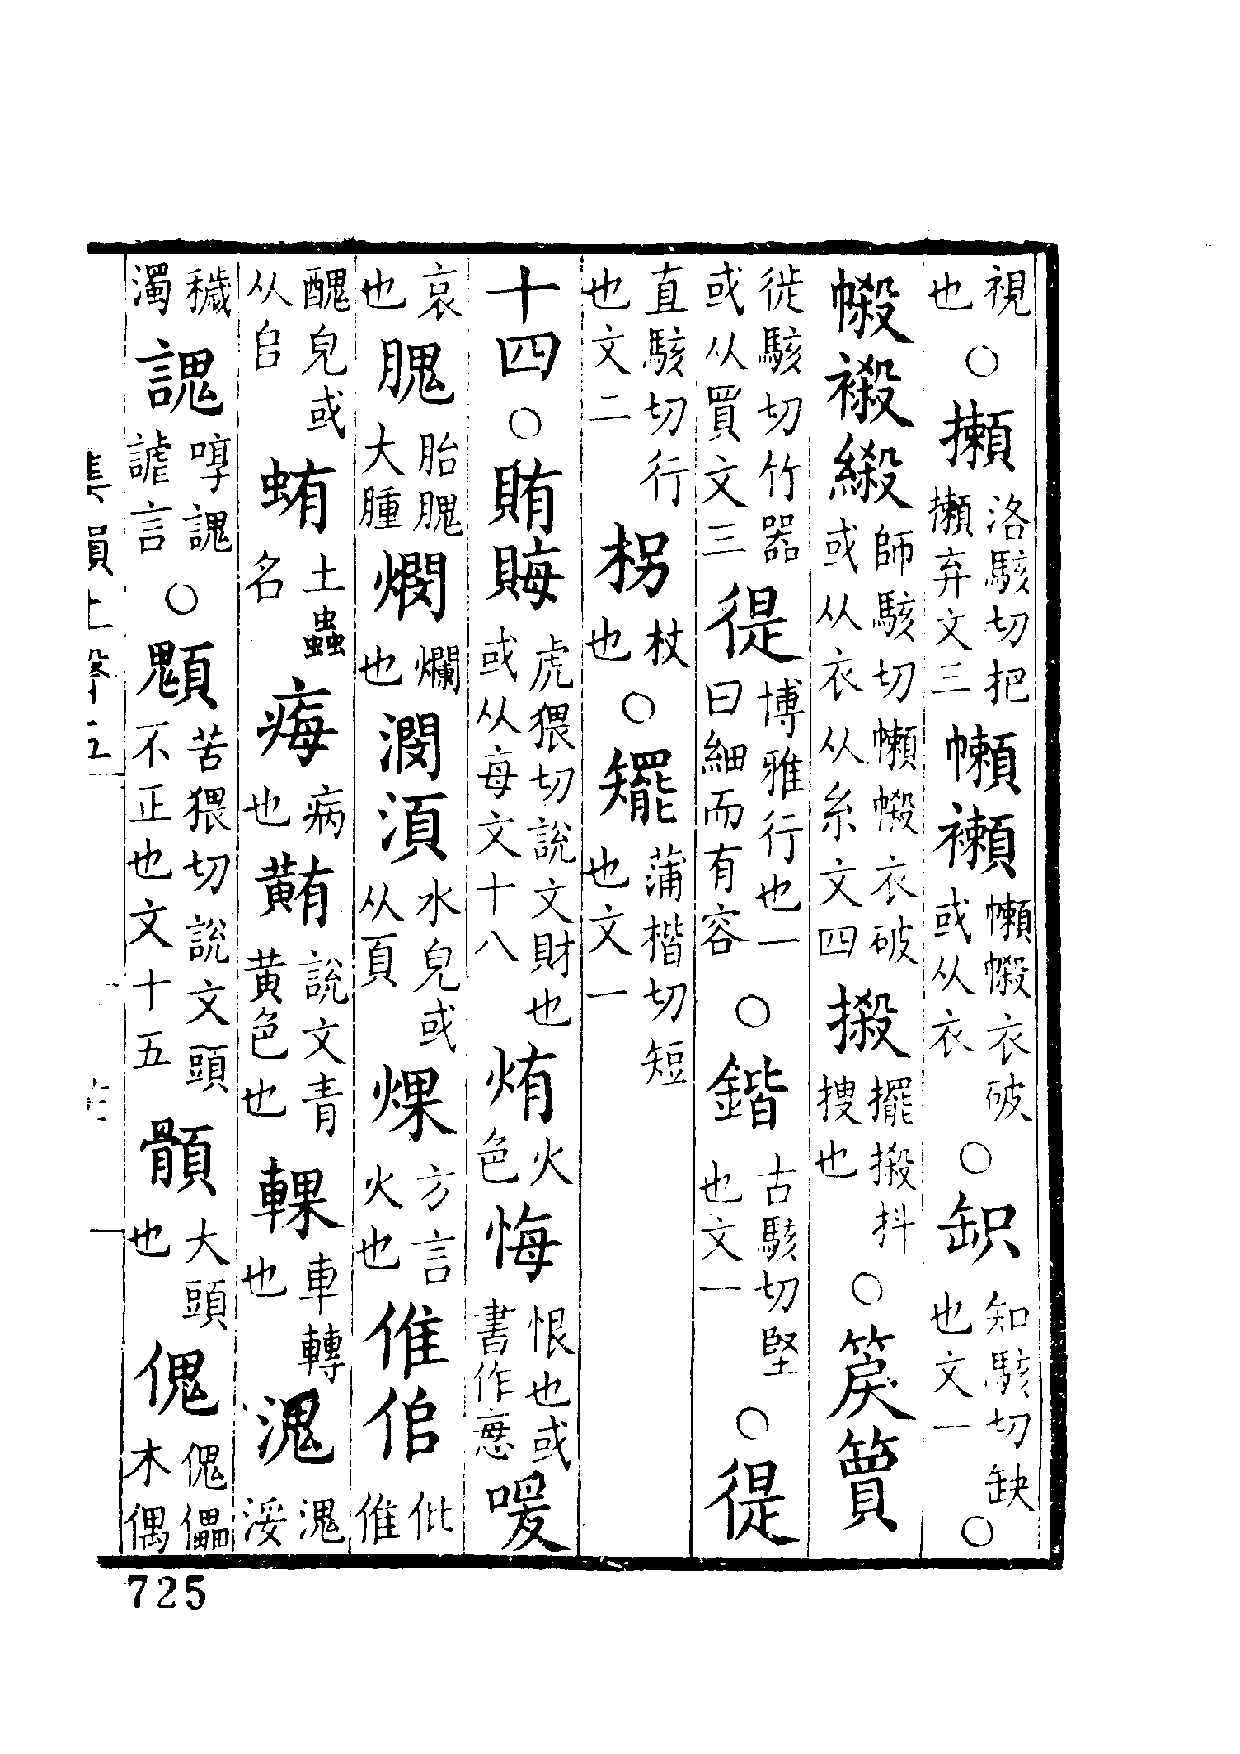 視也○攋洛駭切把攋弃文三㡂襰㡂𢄌衣破或从衣○䤙知駭切缺也文一○
𢄌𧝝縀師駭切㡂𢄌衣破或从衣从糸文四摋擺摋抖捜也○䈆䈝
徙駭切竹器或从買文三徥博雅行也一曰細而有容○鍇古駭切堅也文一○徥
直駭切行也文二枴杖也○䎱蒲楷切短也文一
十四○賄䀲虎猥切說文財也或从每文十八烠火色悔恨也或書作𢙓㗕
哀也䐴胎䐴大腫燘爛也潣湏水皃或从頁㷄方言火也倠㑁仳倠
醜皃或从𠂤蛕土蟲名痗病也䵋說文青黃色也輠車轉也溾溾涹
穢濁䛼諄䛼謔言○顝苦猥切說文頭不正也文十五䫥大頭也傀傀儡木偶
集韻上聲五
725